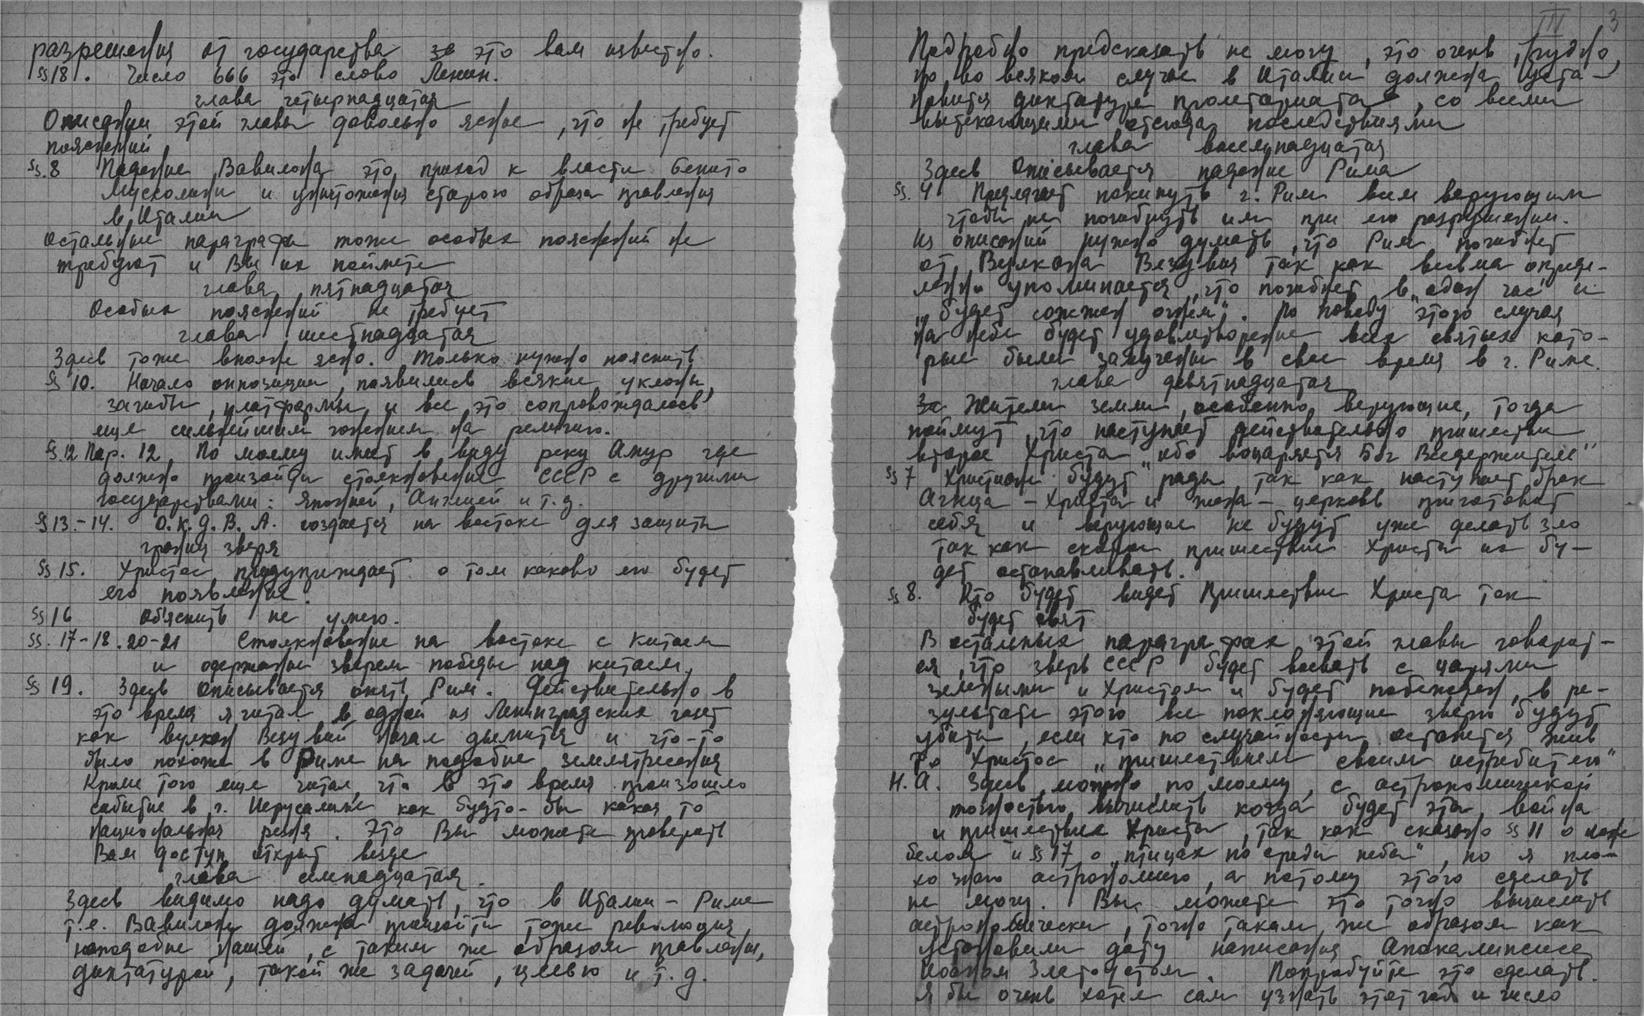 разрешения от государства за это вам известно.
§§18. Число 666 это слово Ленин.
глава четырнадцатая
Описании этой главы довольно ясное, что не требует
пояснений
§§.8 Падение Вавилона это приход к власти Бенито
Муссолини и уничтожения старого образа правления
в Италии
Остальные параграфы тоже особых пояснений не
требуют и Вы их поймете
глава пятнадцатая
Особых пояснений не требует
глава шестнадцатая
Здесь тоже вполне ясно. Только нужно пояснить
§ 10. Начало оппозиции, появились всякие уклоны,
загибы, платформы, и все это сопровождалось
еще сильнейшим гонением на религию.
§.12 Пар. 12. По моему имеет в виду реку Амур где
должно произойти столкновение СССР с другими
государствами: Японией, Англией и т.д.
§ 13.-14. О.К.Д.В.А. создается на востоке для защиты
границ зверя
§§ 15. Христос предупреждает о том каково его будет
его появление.
§§ 16 объяснить не умею.
§§. 17-18.20-21 Столкновение на востоке с Китаем
и одержание зверем победы над Китаем.
§§ 19. Здесь описывается опять Рим. Действительно в
это время я читал в одной из Ленинградских газет
как вулкан Везувий начал дымится и что-то
было похоже в Риме на подобие землетрясения
Кроме того еще читал, что в это время произошло
событие в г. Иерусалиме как будто-бы какая то
национальная резня. Это Вы можете проверить
Вам доступ открыт везде
глава семнадцатая.
Здесь видимо надо думать, что в Италии - Риме
т.е. Вавилоне должна произойти тоже революция
наподобие нашей, с таким же образом правления,
диктатурой, такой же задачей, целью и т.д.
III 3
Подробно предсказать не могу, это очень трудно,
но во всяком случае в Италии должна уста-
новится диктатура пролетариата, со всеми
вытекающими отсюда последствиями
глава восемнадцатая
Здесь описывается падение Рима
§§. 4 Предлагает покинуть г. Рим всем верующим
чтобы не погибнуть им при его разрушении.
Из описаний нужно думать, что Рим погибнет
от Вулкана Везувия так как весьма опреде-
ленно упоминается, что погибнет в „один час" и
„будет сожжен огнем". По поводу этого случая
на небе будет удовлетворение всех святых кото-
рые были замучены в свое время в г. Риме.
глава девятнадцатая
За Жители земли, особенно верующие, тогда
поймут, что наступает действительно пришествие
второе Христа „ибо воцарится Бог Вседержитель"
§§ 7 Христиане будут рады так как наступает брак
Агнца - Христа и жена - церковь приготовит
себя и верующие не будут уже делать зло
так как скорое пришествие Христа их бу-
дет останавливать.
§§ 8. Кто будет видет Пришествие Христа тот
будет свят
В остальных параграфах этой главы говорит-
ся, что зверь СССР будет воевать с царями
земными и Христом и будет побежден, в ре-
зультате этого все поклоняющие зверю будут
убиты, если кто по случайности останется жив
то Христос „пришествием своим истребит его"
Н.А. Здесь можно, по моему, с астрономической
точностью вычислить когда будет эта война
и пришествие Христа, так как сказано §§ 11 о коне
белом и §§ 17 о „птицах по среди неба", но я пло-
хо знаю астрономию, а потому этого сделать
не могу. Вы можете это точно вычислить
астрономически, точно таким же образом как
установили дату написания Апокалипсиса
Иоанном Златоустом. Попробуйте это сделать.
Я бы очень хотел сам узнать этот год и число